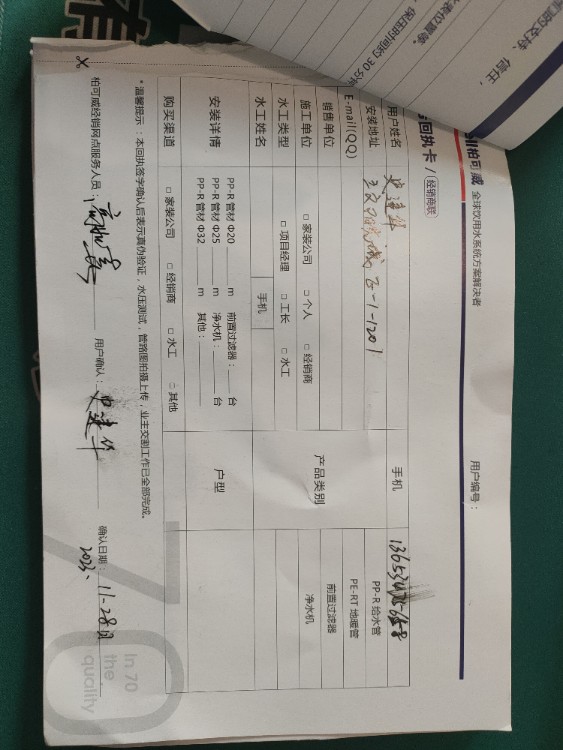 柏可威 全球饮用水系统方案解决者
用户编号：
回执卡 / 经销商联
用户姓名 史建华 手机
安装地址
E-mail(QQ)
销售单位
施工单位 □ 家装公司 □ 个人 □ 经销商
水工类型 □ 项目经理 □ 工长 □ 水工
水工姓名 手机
产品类别 PP-R 给水管
PE-RT 地暖管
前置过滤器
净水机
安装详情 PP-R 管材 Φ20 m 前置过滤器： 台
PP-R 管材 Φ25 m 净水机： 台
PP-R 管材 Φ32 m 其他：
户型
购买渠道 □ 家装公司 □ 经销商 □ 水工 □ 其他
*温馨提示：本回执签字确认后表示真伪验证，水压测试，管路图拍摄上传，业主交割工作已全部完成。
柏可威经销网点服务人员： 用户确认：史建华 确认日期：2023、11-28日
In 70
the
quality
保压时间约 30 分